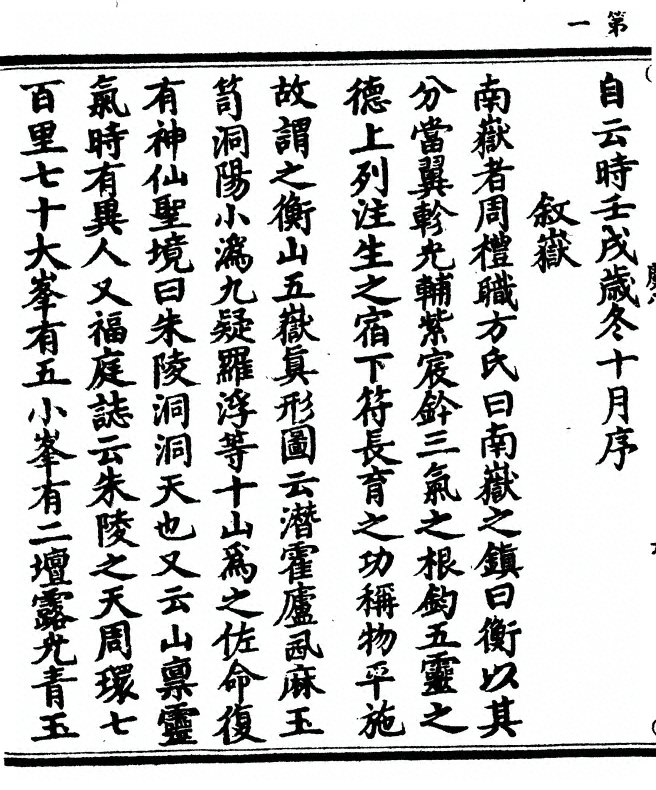 第一
自云時壬戌歲冬十月序
叙嶽
南嶽者周禮職方氏曰南嶽之鎮曰衡以其
分當翼軫光輔紫宸鈐三氣之根鈞五靈之
德上列注生之宿下符長育之功稱物平施
故謂之衡山五嶽眞形圖云潛霍廬麻玉
笥洞陽小潙九疑羅浮等十山爲之佐命復
有神仙聖境曰朱陵洞洞天也又云山禀靈
氣時有異人又福庭誌云朱陵之天周環七
百里七十大峯有五小峯有二壇露光青玉